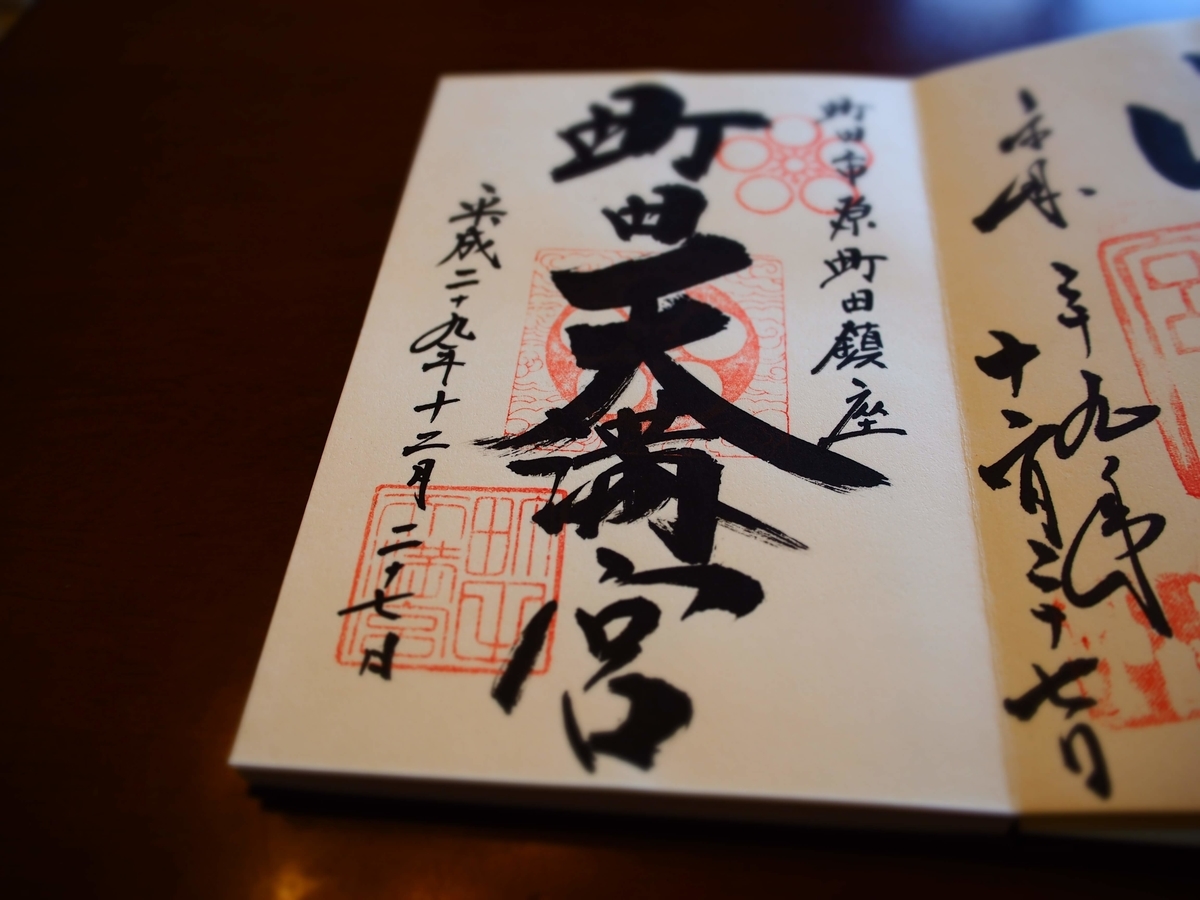 奉拝
平成二十九年
十二月二十七日
町田市原町田鎮座
町田天満宮
平成二十九年十二月二十七日